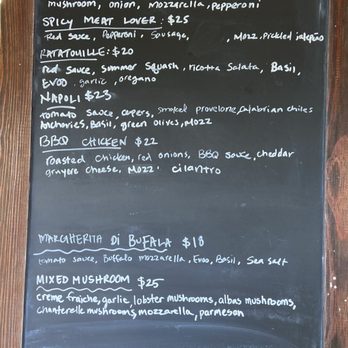 mushroom, onion, mozzarella, pepperoni
SPICY MEAT LOVER: $25
Red Sauce, Pepperoni, Sausage, , Mozz, Pickled jalepño
RATATOUILLE: $20
Red sauce, summer squash, ricotta Salata, Basil,
EVOO, garlic, oregano
NAPOLI $23
Tomato sauce, capers, smoked provelone, Calabrian chiles
Anchovies, Basil, green olives, Mozz
BBQ CHICKEN $22
roasted chicken, red onions, BBQ sauce, cheddar
gruyere cheese, Mozz, cilantro
MARGHERITA DI BUFALA $18
tomato sauce, Buffalo mozzarella, Evoo, Basil, Sea salt
MIXED MUSHROOM $25
creme fraiche, garlic, lobster mushrooms, albas mushrooms,
chanterelle mushrooms, mozzarella, parmeson